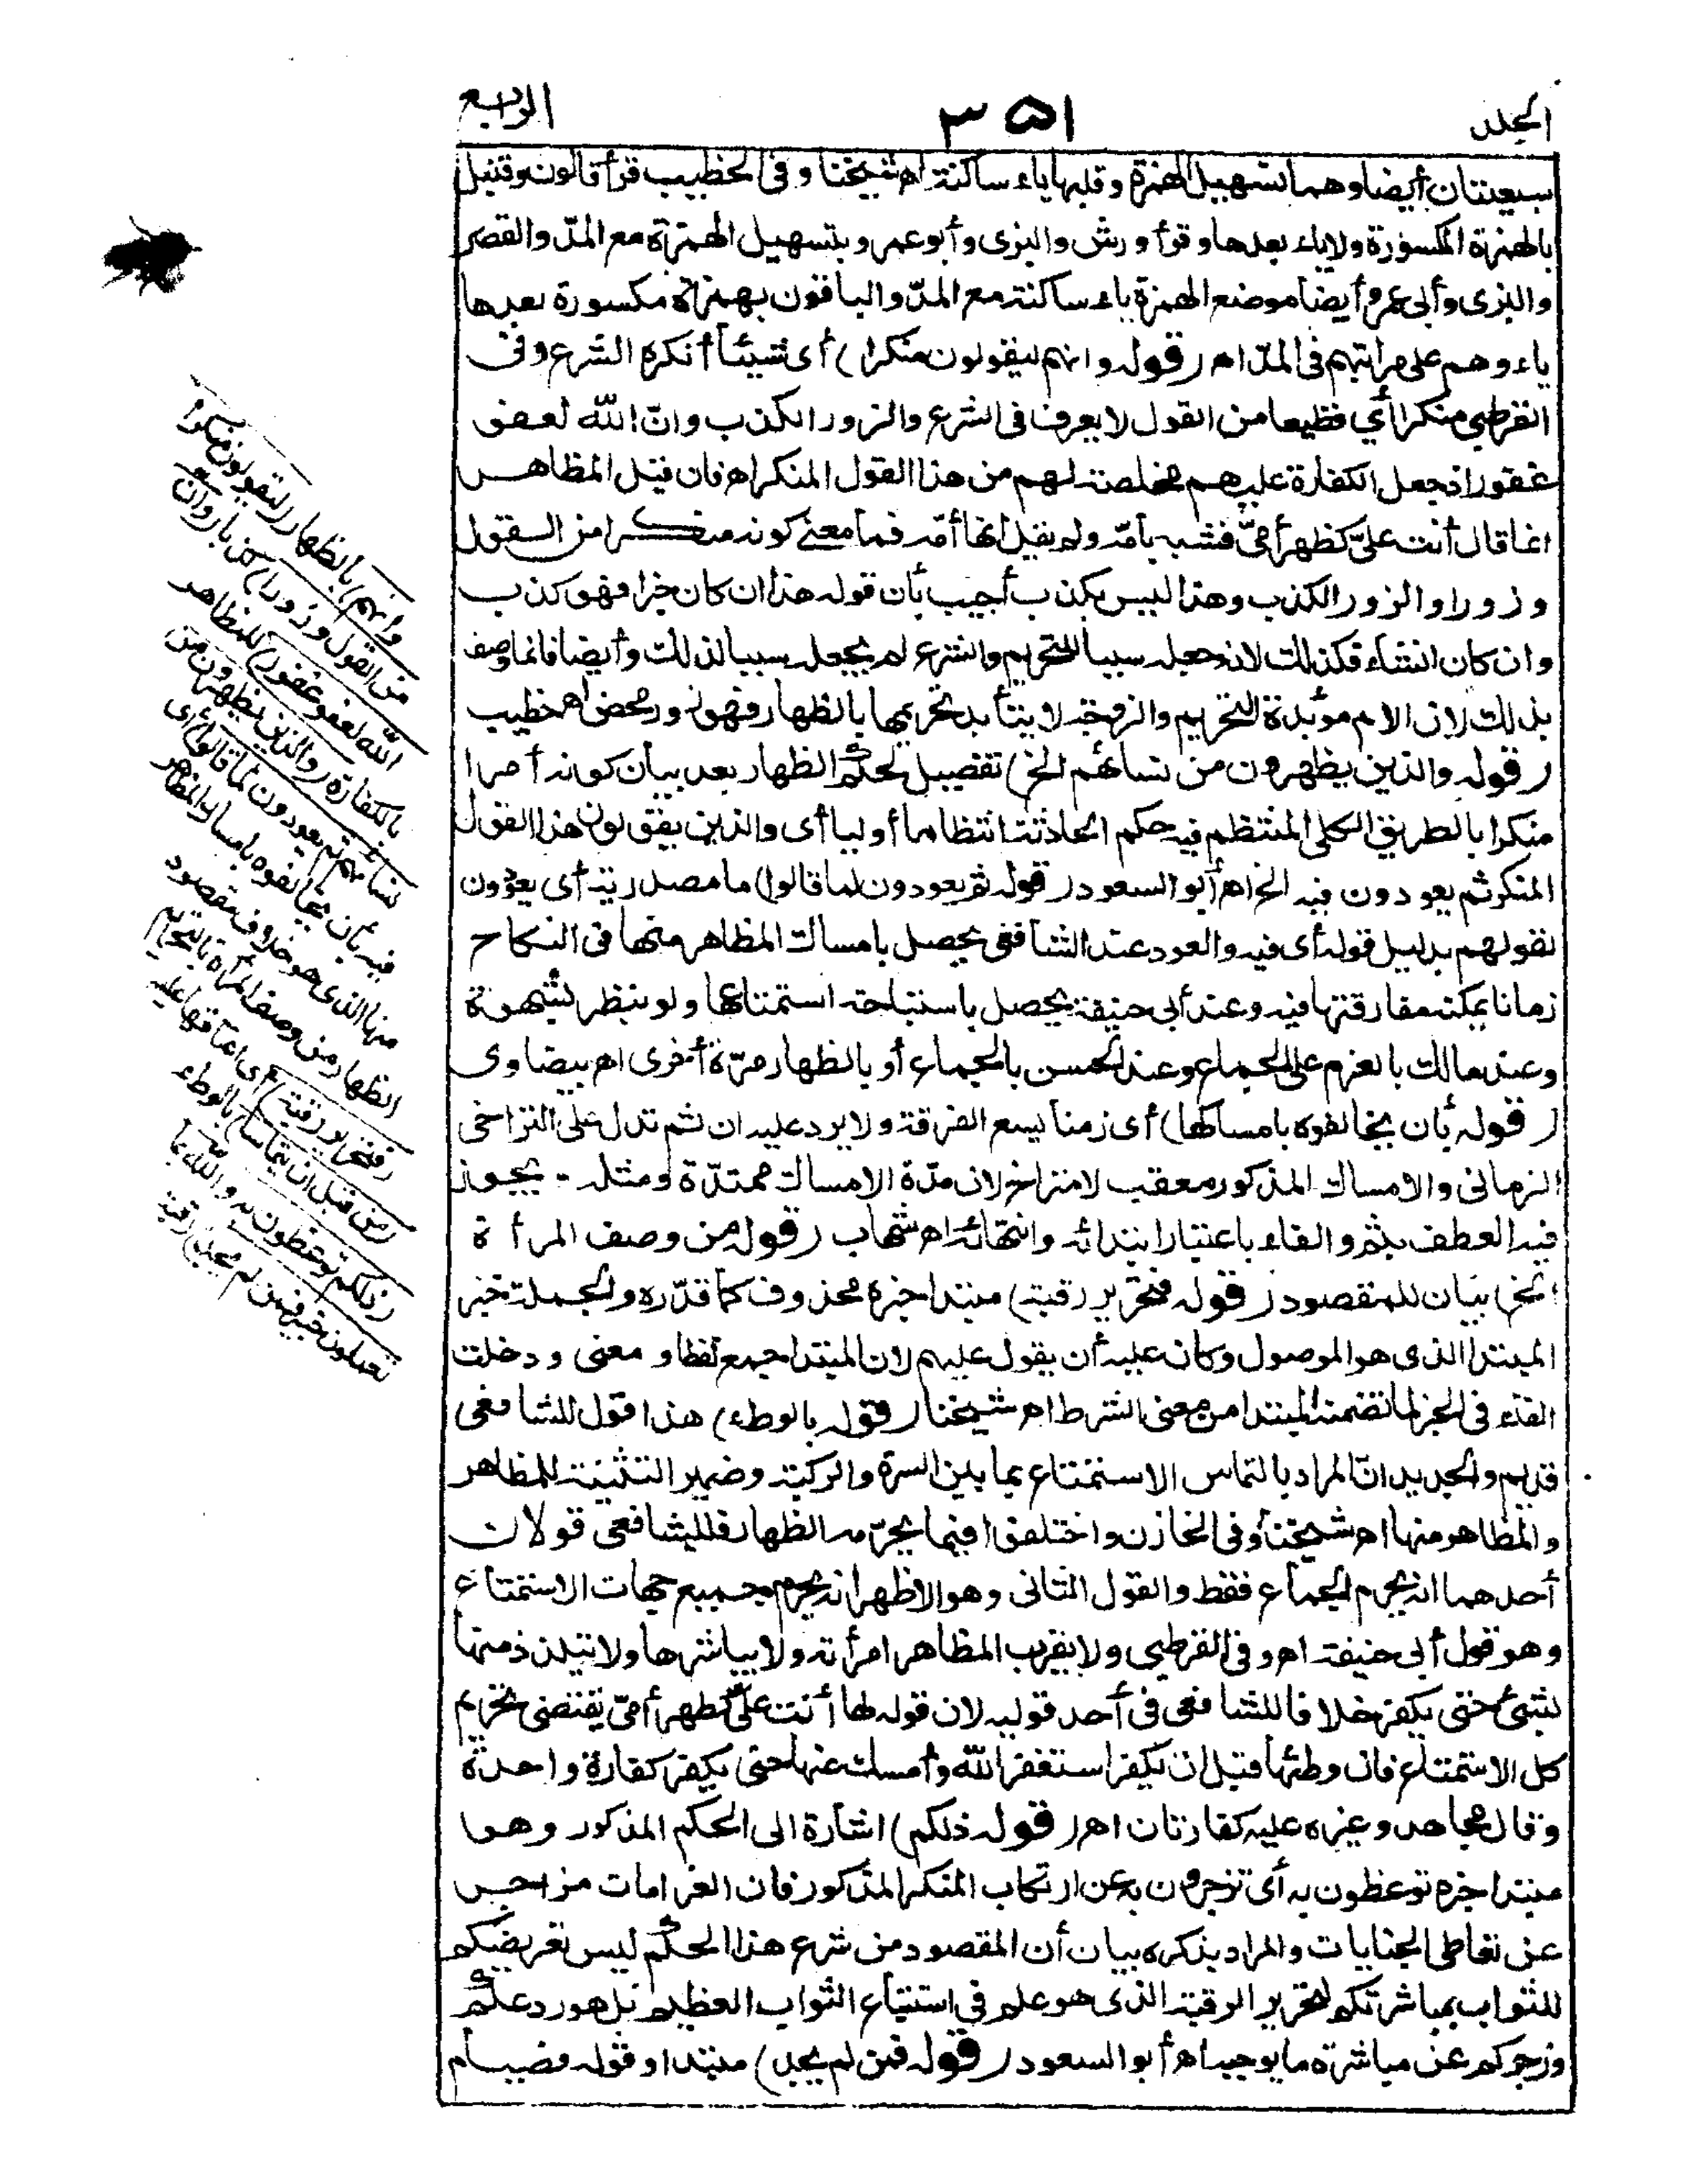 الجلد ٣٥١ الرابع
سبعيتان أيضا وهما تسهيل الهمزة وقلبها ياء ساكنة اه شيخنا وفى الخطيب قرأ قالون وقنبل
بالهمزة المكسورة ولا ياء بعدها وقرأ ورش والبزى وأبو عمرو بتسهيل الهمزة مع المدّ والقصر
والبزى وأبى عمرو أيضا موضع الهمزة ياء ساكنة مع المدّ والباقون بهمزة مكسورة بعدها
ياء وهم على مراتبهم فى المدّ اه (قوله وانهم ليقولون منكرا) أى شيئا أنكره الشرع وفى
القرطبى منكرا أي فظيعا من القول لا يعرف فى الشرع والزور الكذب وانّ الله لعفو
غفور اذ جعل الكفارة عليهم مخلصة لهم من هذا القول المنكر اه فان قيل المظاهر
انما قال أنت علىّ كظهر أمىّ فشبه بأمّه ولم يقل انها أمّه فما معنى كونه منكرا من القول
وزورا والزور الكذب وهذا ليس بكذب أجيب بأن قوله هذا ان كان خبرا فهو كذب
وان كان انشاء فكذلك لانه جعله سببا للتحريم والشرع لم يجعله سببا لذلك وأيضا فانما وصف
بذلك لان الام مؤبدة التحريم والزوجة لا يتأبد تحريمها بالظهار فهو زور محض اه خطيب
(قوله والذين يظهرون من نسائهم الخ) تفصيل لحكم الظهار بعد بيان كونه أمرا
منكرا بالطريق الكلى المنتظم فيه حكم الحادثة انتظاما أوليا أى والذين يقولون هذا القول
المنكر ثم يعودون فيه الخ اه أبو السعود (قوله ثم يعودون لما قالوا) ما مصدرية أى يعودون
لقولهم بدليل قوله أى فيه والعود عند الشافعى يحصل بامساك المظاهر منها فى النكاح
زمانا يمكنه مفارقتها فيه وعند أبى حنيفة يحصل باستباحة استمتاعها ولو بنظر بشهوة
وعند مالك بالعزم على الجماع وعند الحسن بالجماع أو بالظهار مرّة أخرى اه بيضاوى
(قوله بأن يخالفوه بامساكها) أى زمنا يسع الفرقة ولا يرد عليه ان ثم تدل على التراخى
الزمانى والامساك المذكور معقب لا متراخ لان مدّة الامساك ممتدّة ومثله يجوز
فيه العطف بثم والفاء باعتبار ابتدائه وانتهائه اه شهاب (قوله من وصف المرأة
الخ) بيان للمقصود (قوله فتحرير رقبة) مبتدا خبره محذوف كما قدّره والجملة خبر
المبتدا الذى هو الموصول وكان عليه أن يقول عليهم لان المبتدا جمع لفظا ومعنى ودخلت
الفاء فى الخبر لما تضمنه المبتدا من معنى الشرط اه شيخنا (قوله بالوطء) هذا قول للشافعى
قديم والجديد انّ المراد بالتماس الاستمتاع بما بين السرة والركبة وضمير التثنية للمظاهر
والمظاهر منها اه شيخنا وفى الخازن واختلفوا فيما يحرّمه الظهار فللشافعى قولان
أحدهما انه يحرم الجماع فقط والقول الثانى وهو الاظهر انه يحرم جميع جهات الاستمتاع
وهو قول أبى حنيفة اه وفى القرطبى ولا يقرب المظاهر امرأته ولا يباشرها ولا يتلذذ منها
بشئ حتى يكفر خلافا للشافعى فى أحد قوليه لان قوله لها أنت علىّ كظهر أمىّ يقتضى تحريم
كل الاستمتاع فان وطئها قبل ان يكفر استغفر الله وأمسك عنها حتى يكفر كفارة واحدة
وقال مجاهد وغيره عليه كفارتان اه (قوله ذلكم) اشارة الى الحكم المذكور وهو
مبتدا خبره توعظون به أى تزجرون به عن ارتكاب المنكر المذكور فان الغرامات مزاجر
عن تعاطى الجنايات والمراد بذكره بيان أن المقصود من شرع هذا الحكم ليس تعريضكم
للثواب بمباشرتكم لتحرير الرقبة الذى هو علم فى استتباع الثواب العظيم بل هو ردعكم
وزجركم عن مباشرة ما يوجبه اه أبو السعود (قوله فمن لم يجد) مبتدا وقوله فصيام
وانهم) بالظهار (ليقولون منكرا
من القول وزورا) كذبا (وان
الله لعفو غفور) للمظاهر
بالكفارة (والذين يظهرون من
نسائهم ثم يعودون لما قالوا) أى
فيه بأن يخالفوه بامساك المظاهر
منها الذى هو خلاف مقصود
الظهار من وصف المرأة بالتحريم
(فتحرير رقبة) أى اعتاقها عليه
(من قبل ان يتماسا) بالوطء
(ذلكم توعظون به والله بما
تعملون خبير فمن لم يجد) رقبة